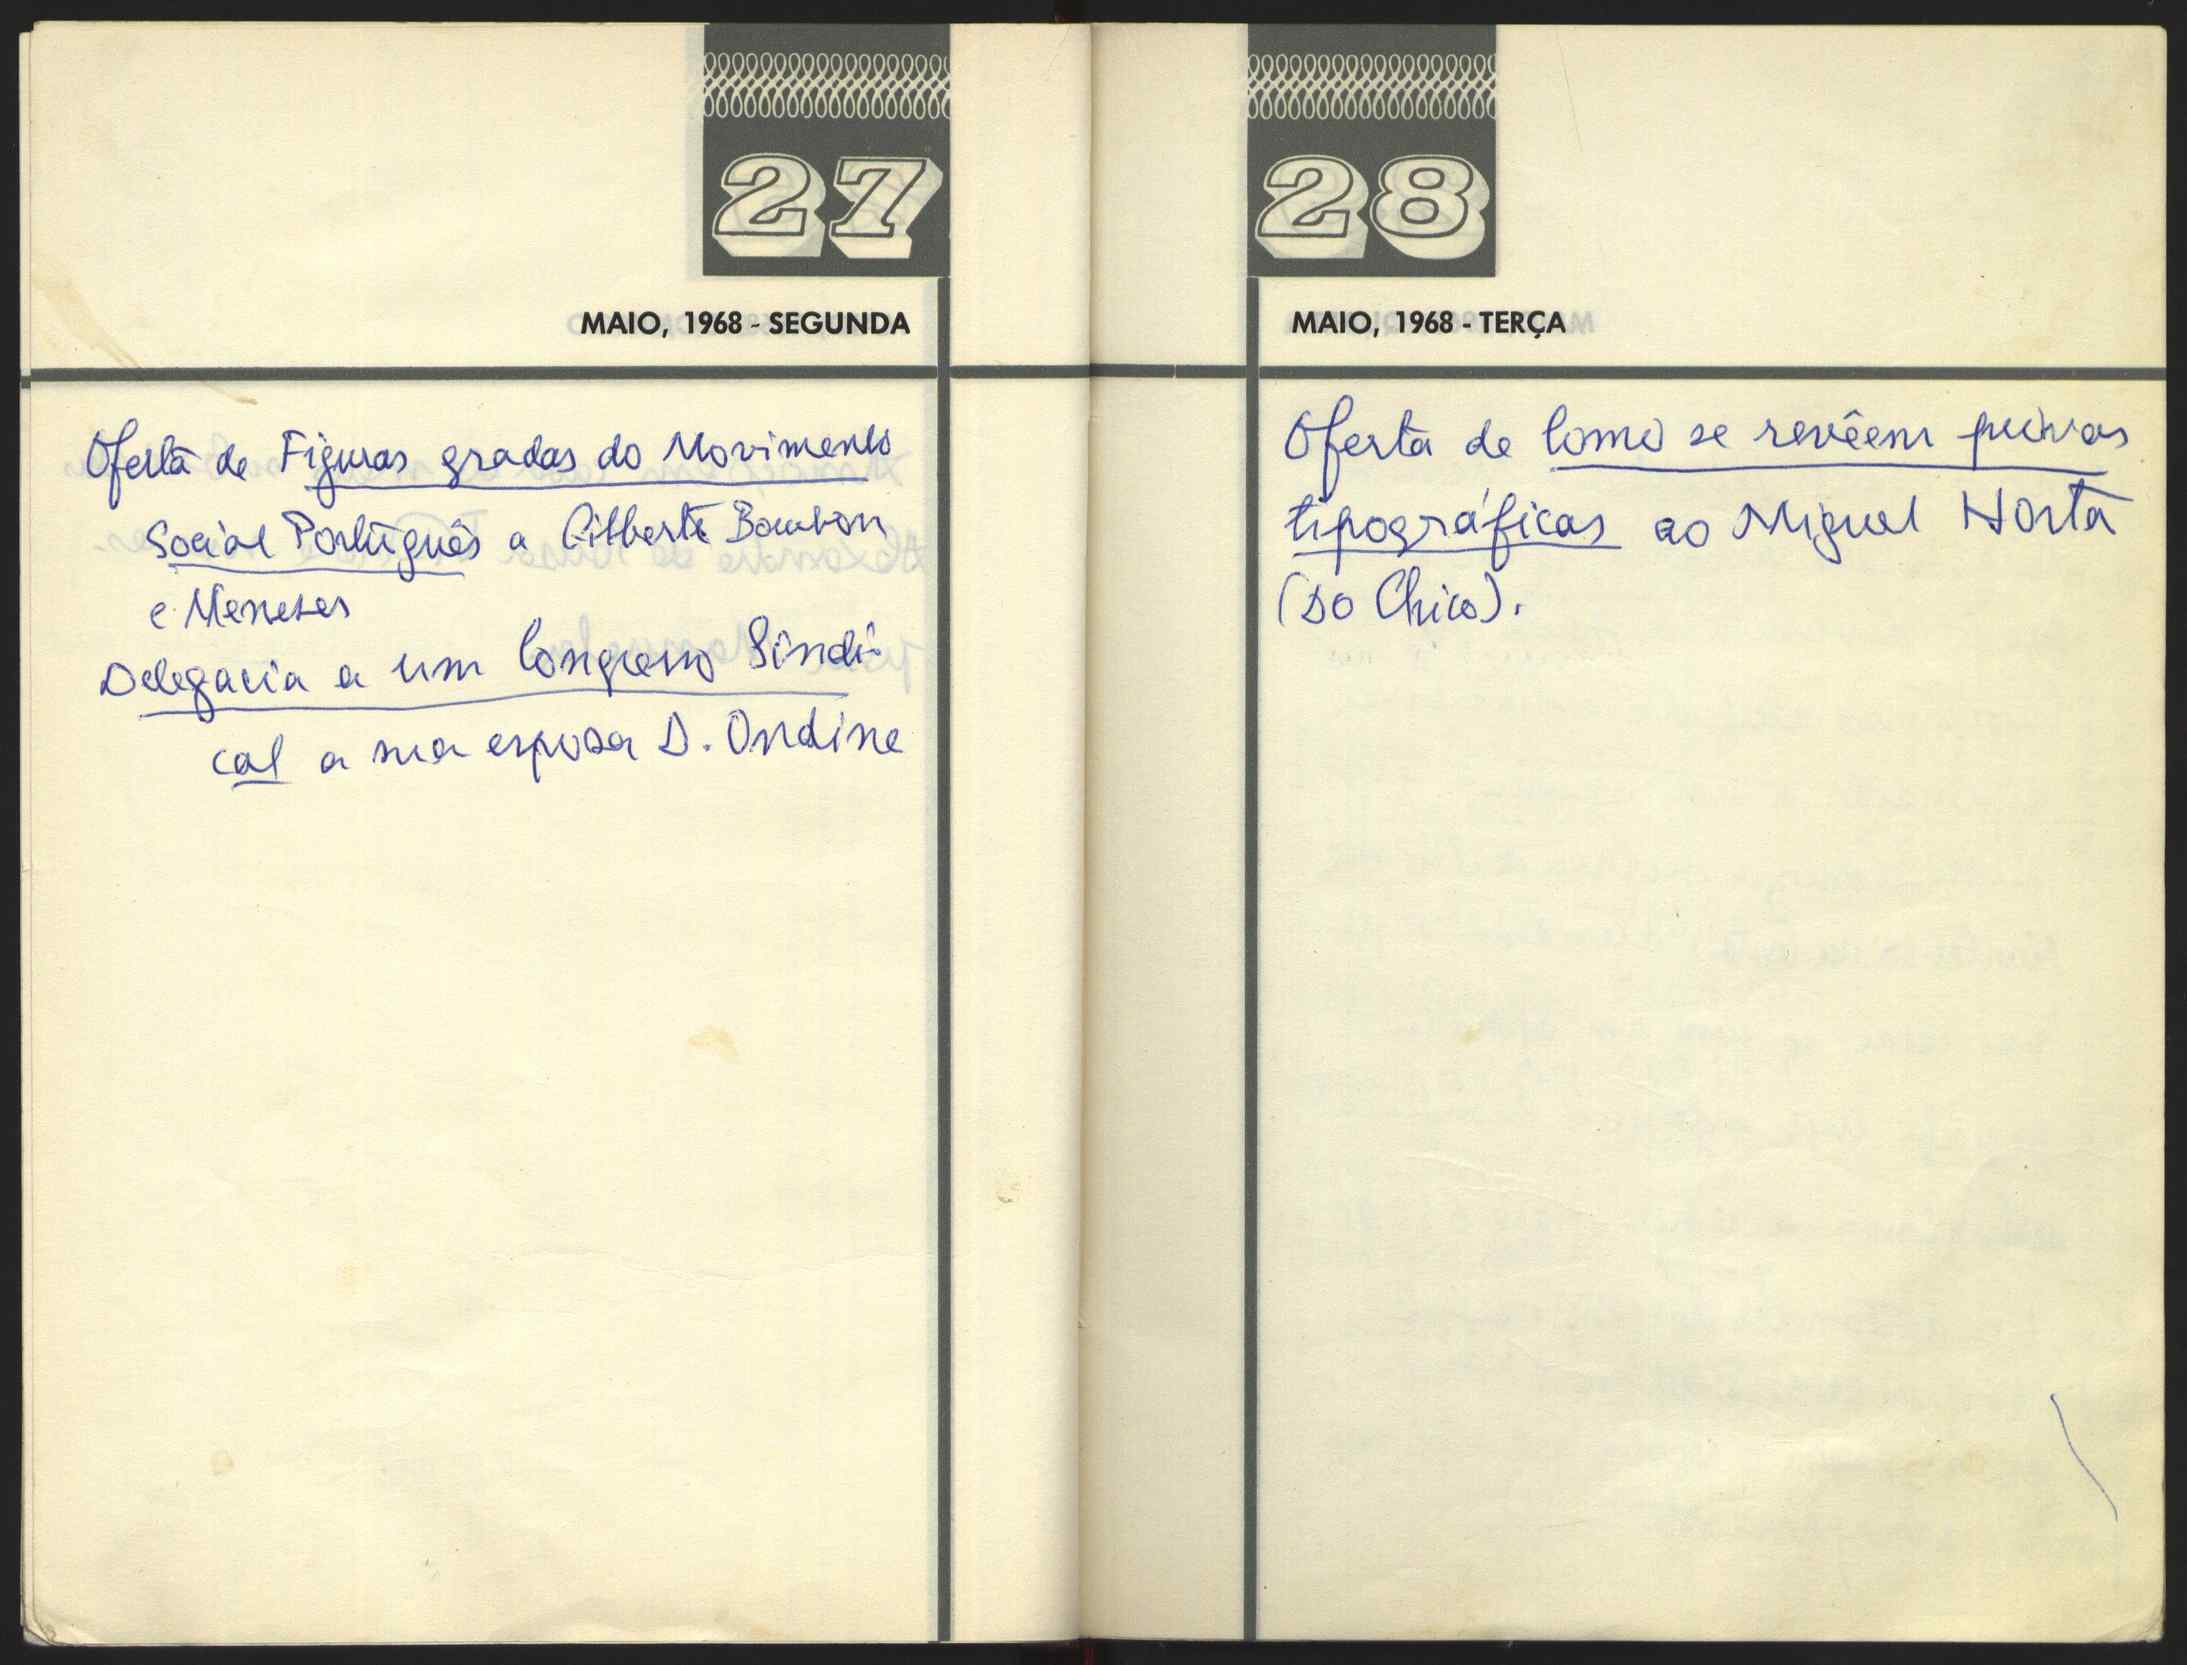 27
MAIO, 1968 - SEGUNDA
Oferta de Figuras gradas do Movimento
Social Português a Gilberto Bourbon
e Meneses
Delegacia a um Congresso Sindi-
cal a sua esposa D. Ondine
28
MAIO, 1968 - TERÇA
Oferta de Como se revêem provas
tipográficas ao Miguel Horta
(do Chico).